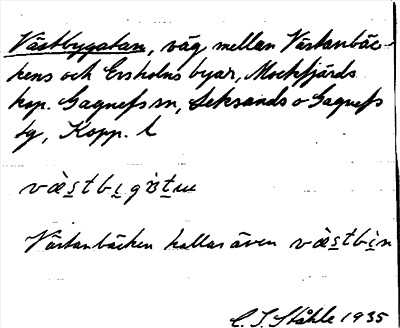 Västbygatan, väg mellan Västanbäc-
kens och Ersholns byar, Mockfjärds
kap. Gagnefs sn, Leksands o Gagnefs
tg, Kopp. l
Västanbäcken kallas även
C. I. Ståhle 1935